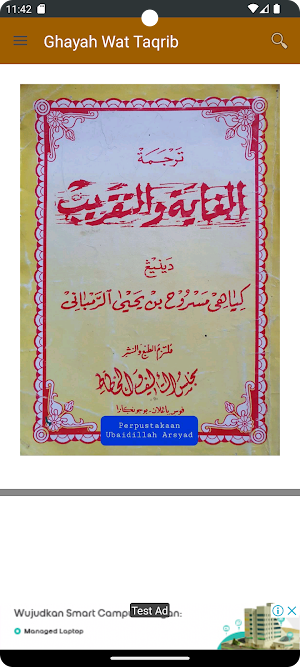 11:42
Ghayah Wat Taqrib
ترجمة
الغاية والتقريب
دينيڠ
كياهي مسروح بن يحيى الرمباني
ملتزم الطبع والنشر
Perpustakaan
Ubaidillah Arsyad
Wujudkan Smart Camp
Test Ad
an:
Managed Laptop